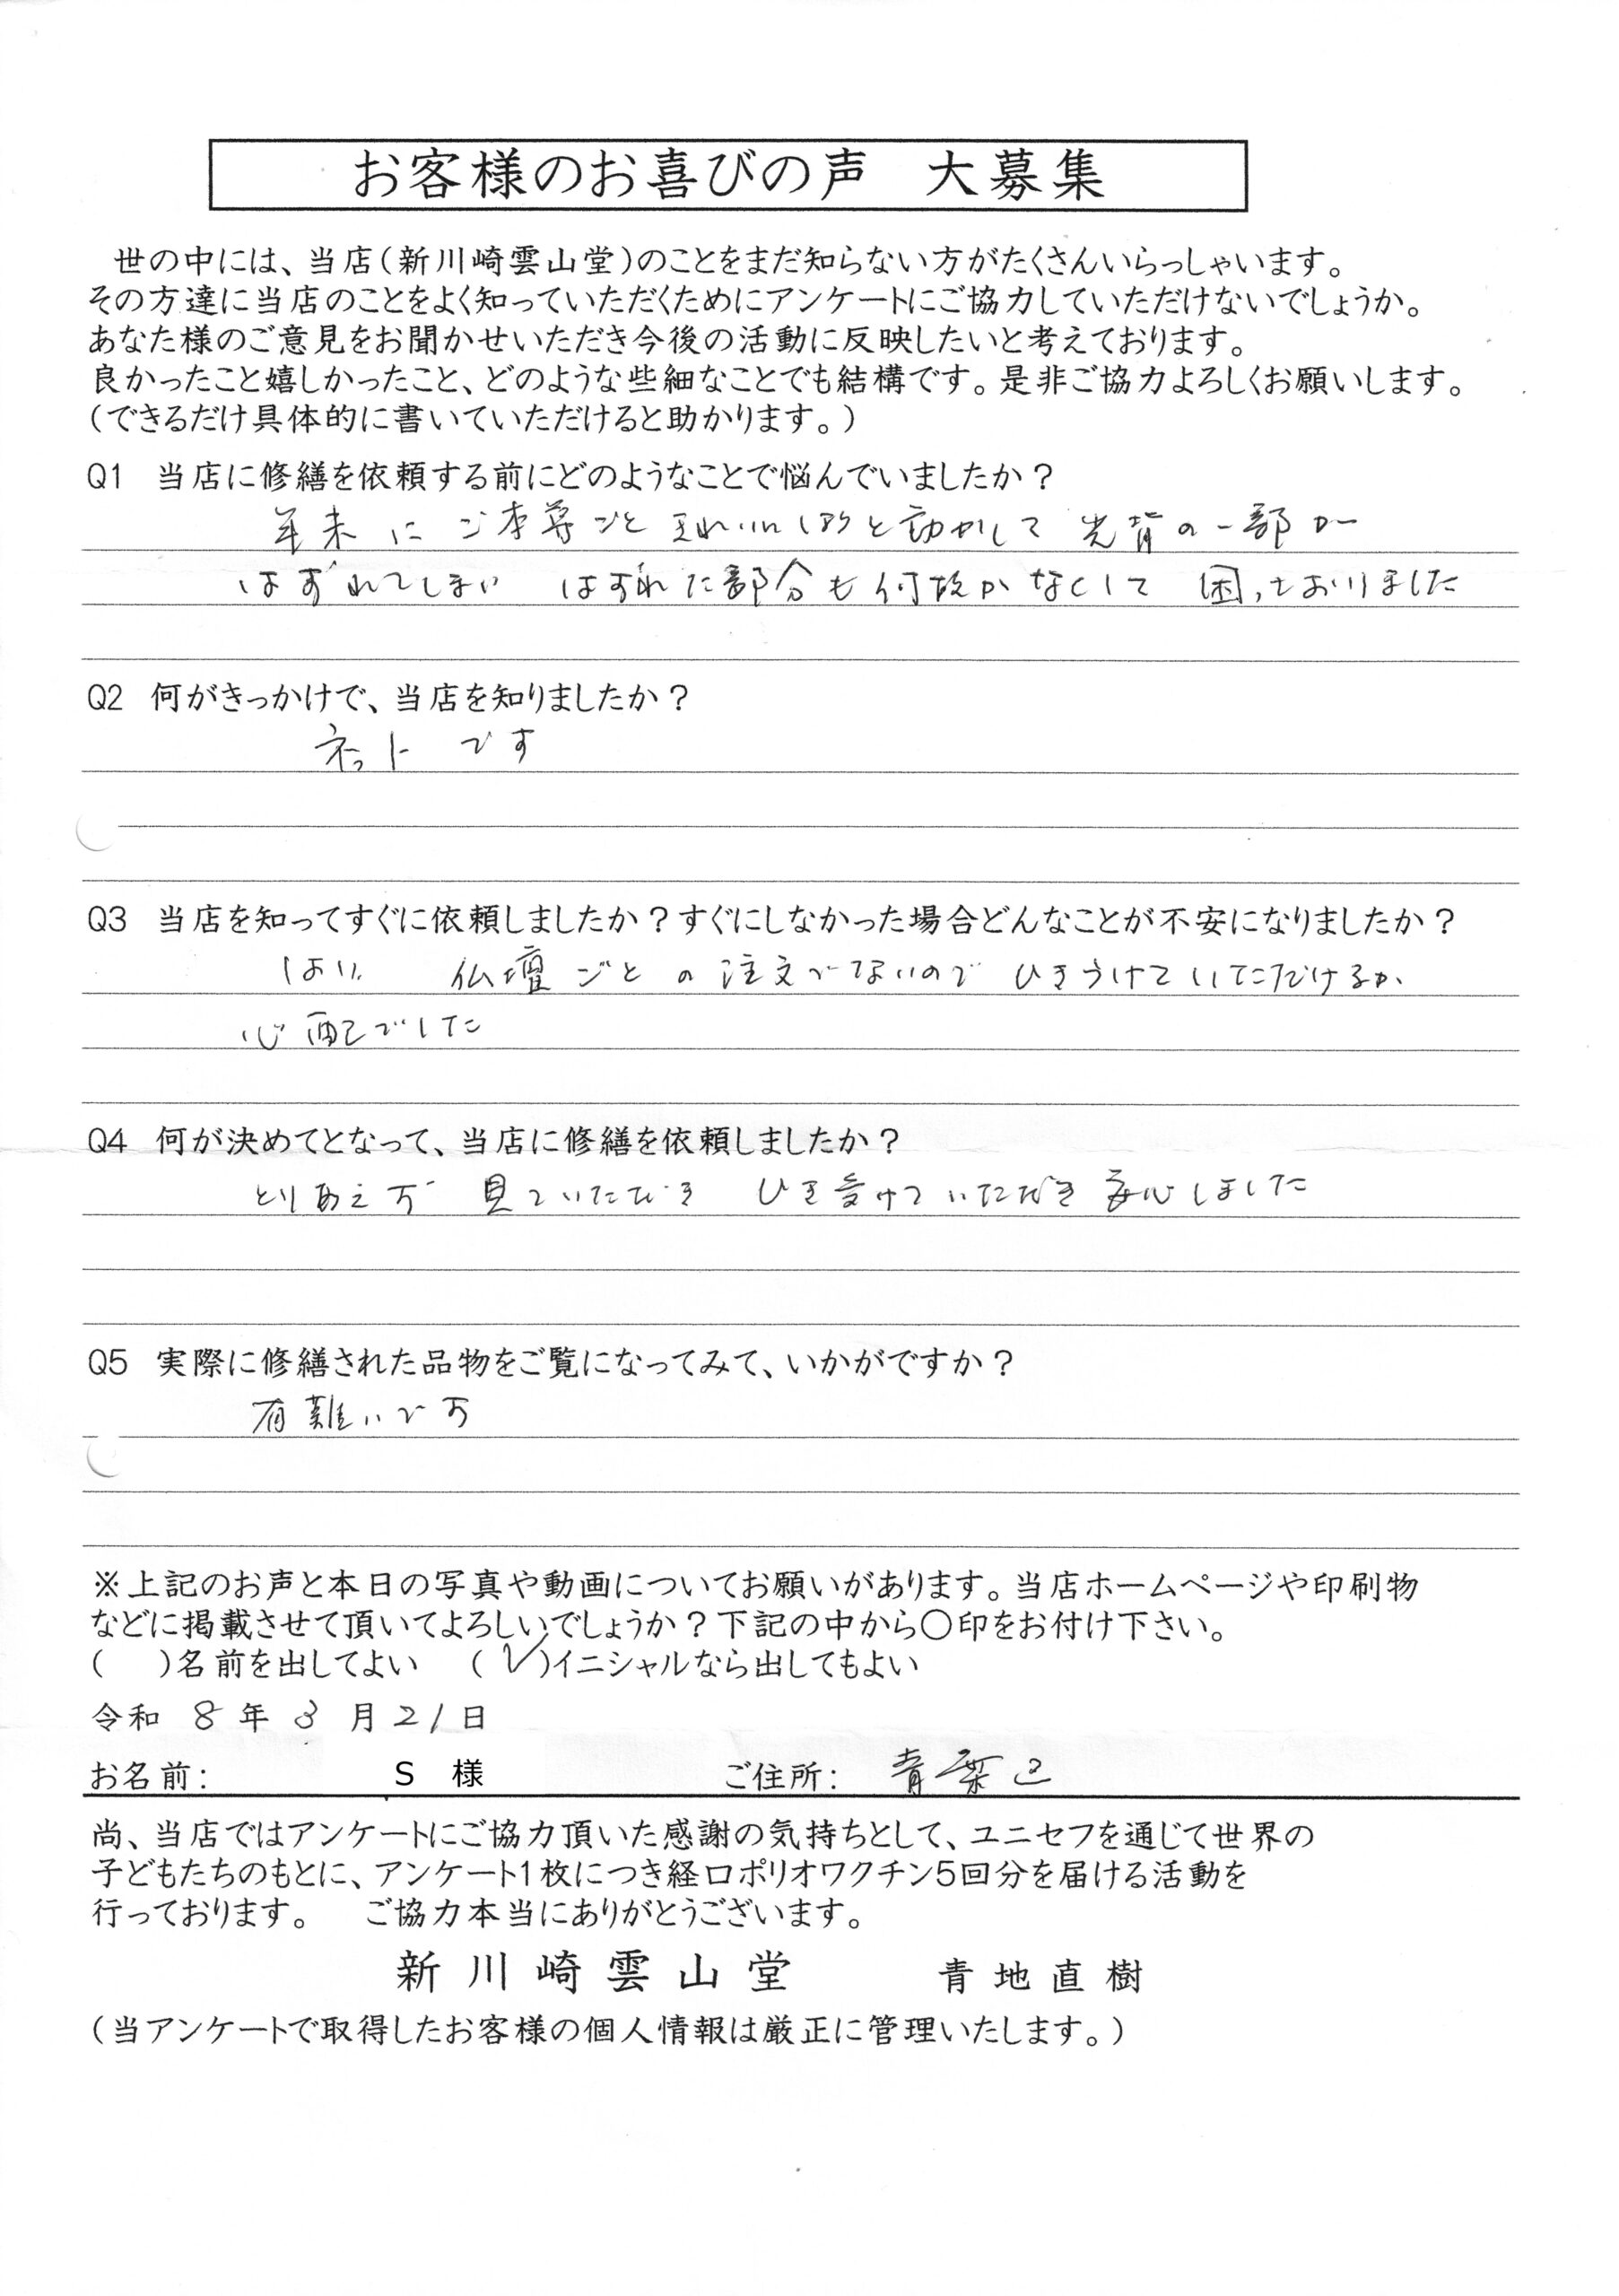 お客様のお喜びの声　大募集
世の中には、当店（新川崎雲山堂）のことをまだ知らない方がたくさんいらっしゃいます。
その方達に当店のことをよく知っていただくためにアンケートにご協力していただけないでしょうか。
あなた様のご意見をお聞かせいただき今後の活動に反映したいと考えております。
良かったこと嬉しかったこと、どのような些細なことでも結構です。是非ご協力よろしくお願いします。
（できるだけ具体的に書いていただけると助かります。）
Q1　当店に修繕を依頼する前にどのようなことで悩んでいましたか？
年末に ご本尊ごと きれいに と動かして 光背の一部が
はずれてしまい はずれた部分も何故かなくして 困っておりました
Q2　何がきっかけで、当店を知りましたか？
ネットです
Q3　当店を知ってすぐに依頼しましたか？すぐにしなかった場合どんなことが不安になりましたか？
はい 仏壇ごとの注文でないので ひきうけていただけるか
心配でした
Q4　何が決めてとなって、当店に修繕を依頼しましたか？
とりあえず 見ていただき ひき受けていただき 安心しました
Q5　実際に修繕された品物をご覧になってみて、いかがですか？
有難いです
※上記のお声と本日の写真や動画についてお願いがあります。当店ホームページや印刷物
などに掲載させて頂いてよろしいでしょうか？下記の中から〇印をお付け下さい。
（　　）名前を出してよい　（ ✓ ）イニシャルなら出してもよい
令和 8 年 3 月 21 日
お名前：　S 様　ご住所： 青葉区
尚、当店ではアンケートにご協力頂いた感謝の気持ちとして、ユニセフを通じて世界の
子どもたちのもとに、アンケート1枚につき経口ポリオワクチン5回分を届ける活動を
行っております。　ご協力本当にありがとうございます。
新川崎雲山堂　青地直樹
（当アンケートで取得したお客様の個人情報は厳正に管理いたします。）